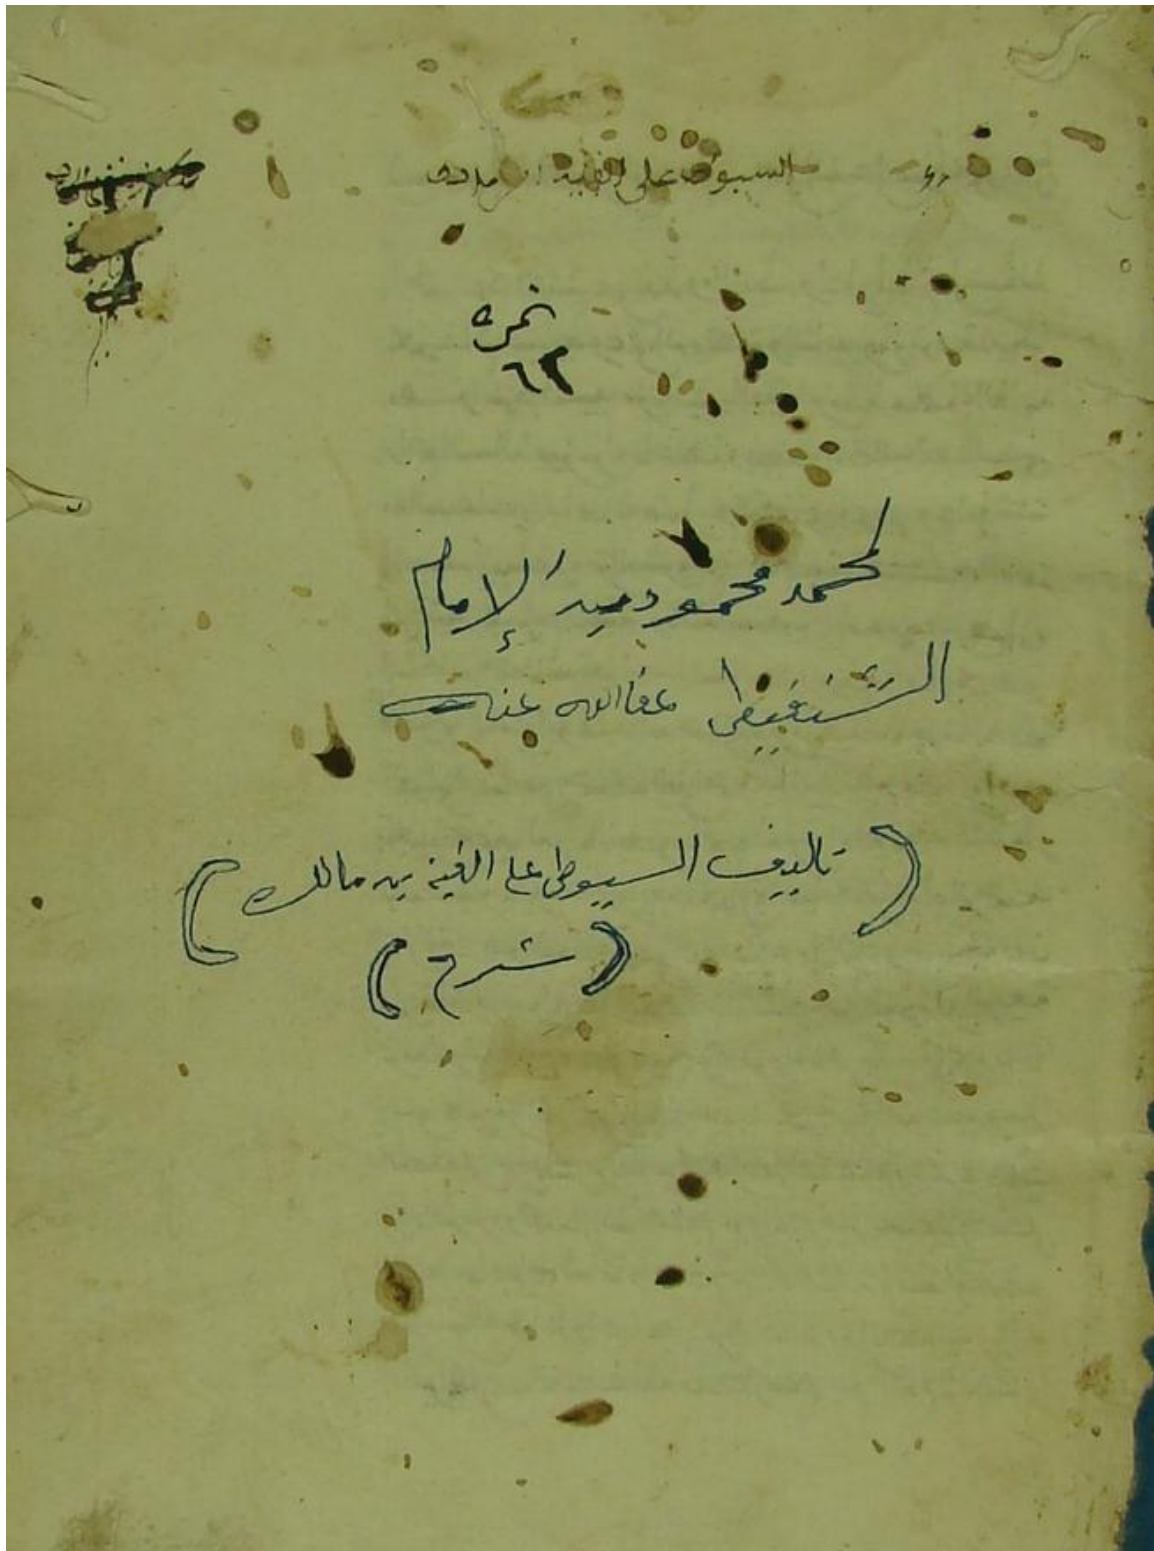 السيوطى على الفية
نمره
٦٢
لمحمد محمود بن الإمام
الشنقيطى عفا الله عنه
( تاليف السيوطى على الفية بن مالك )
( شرح )